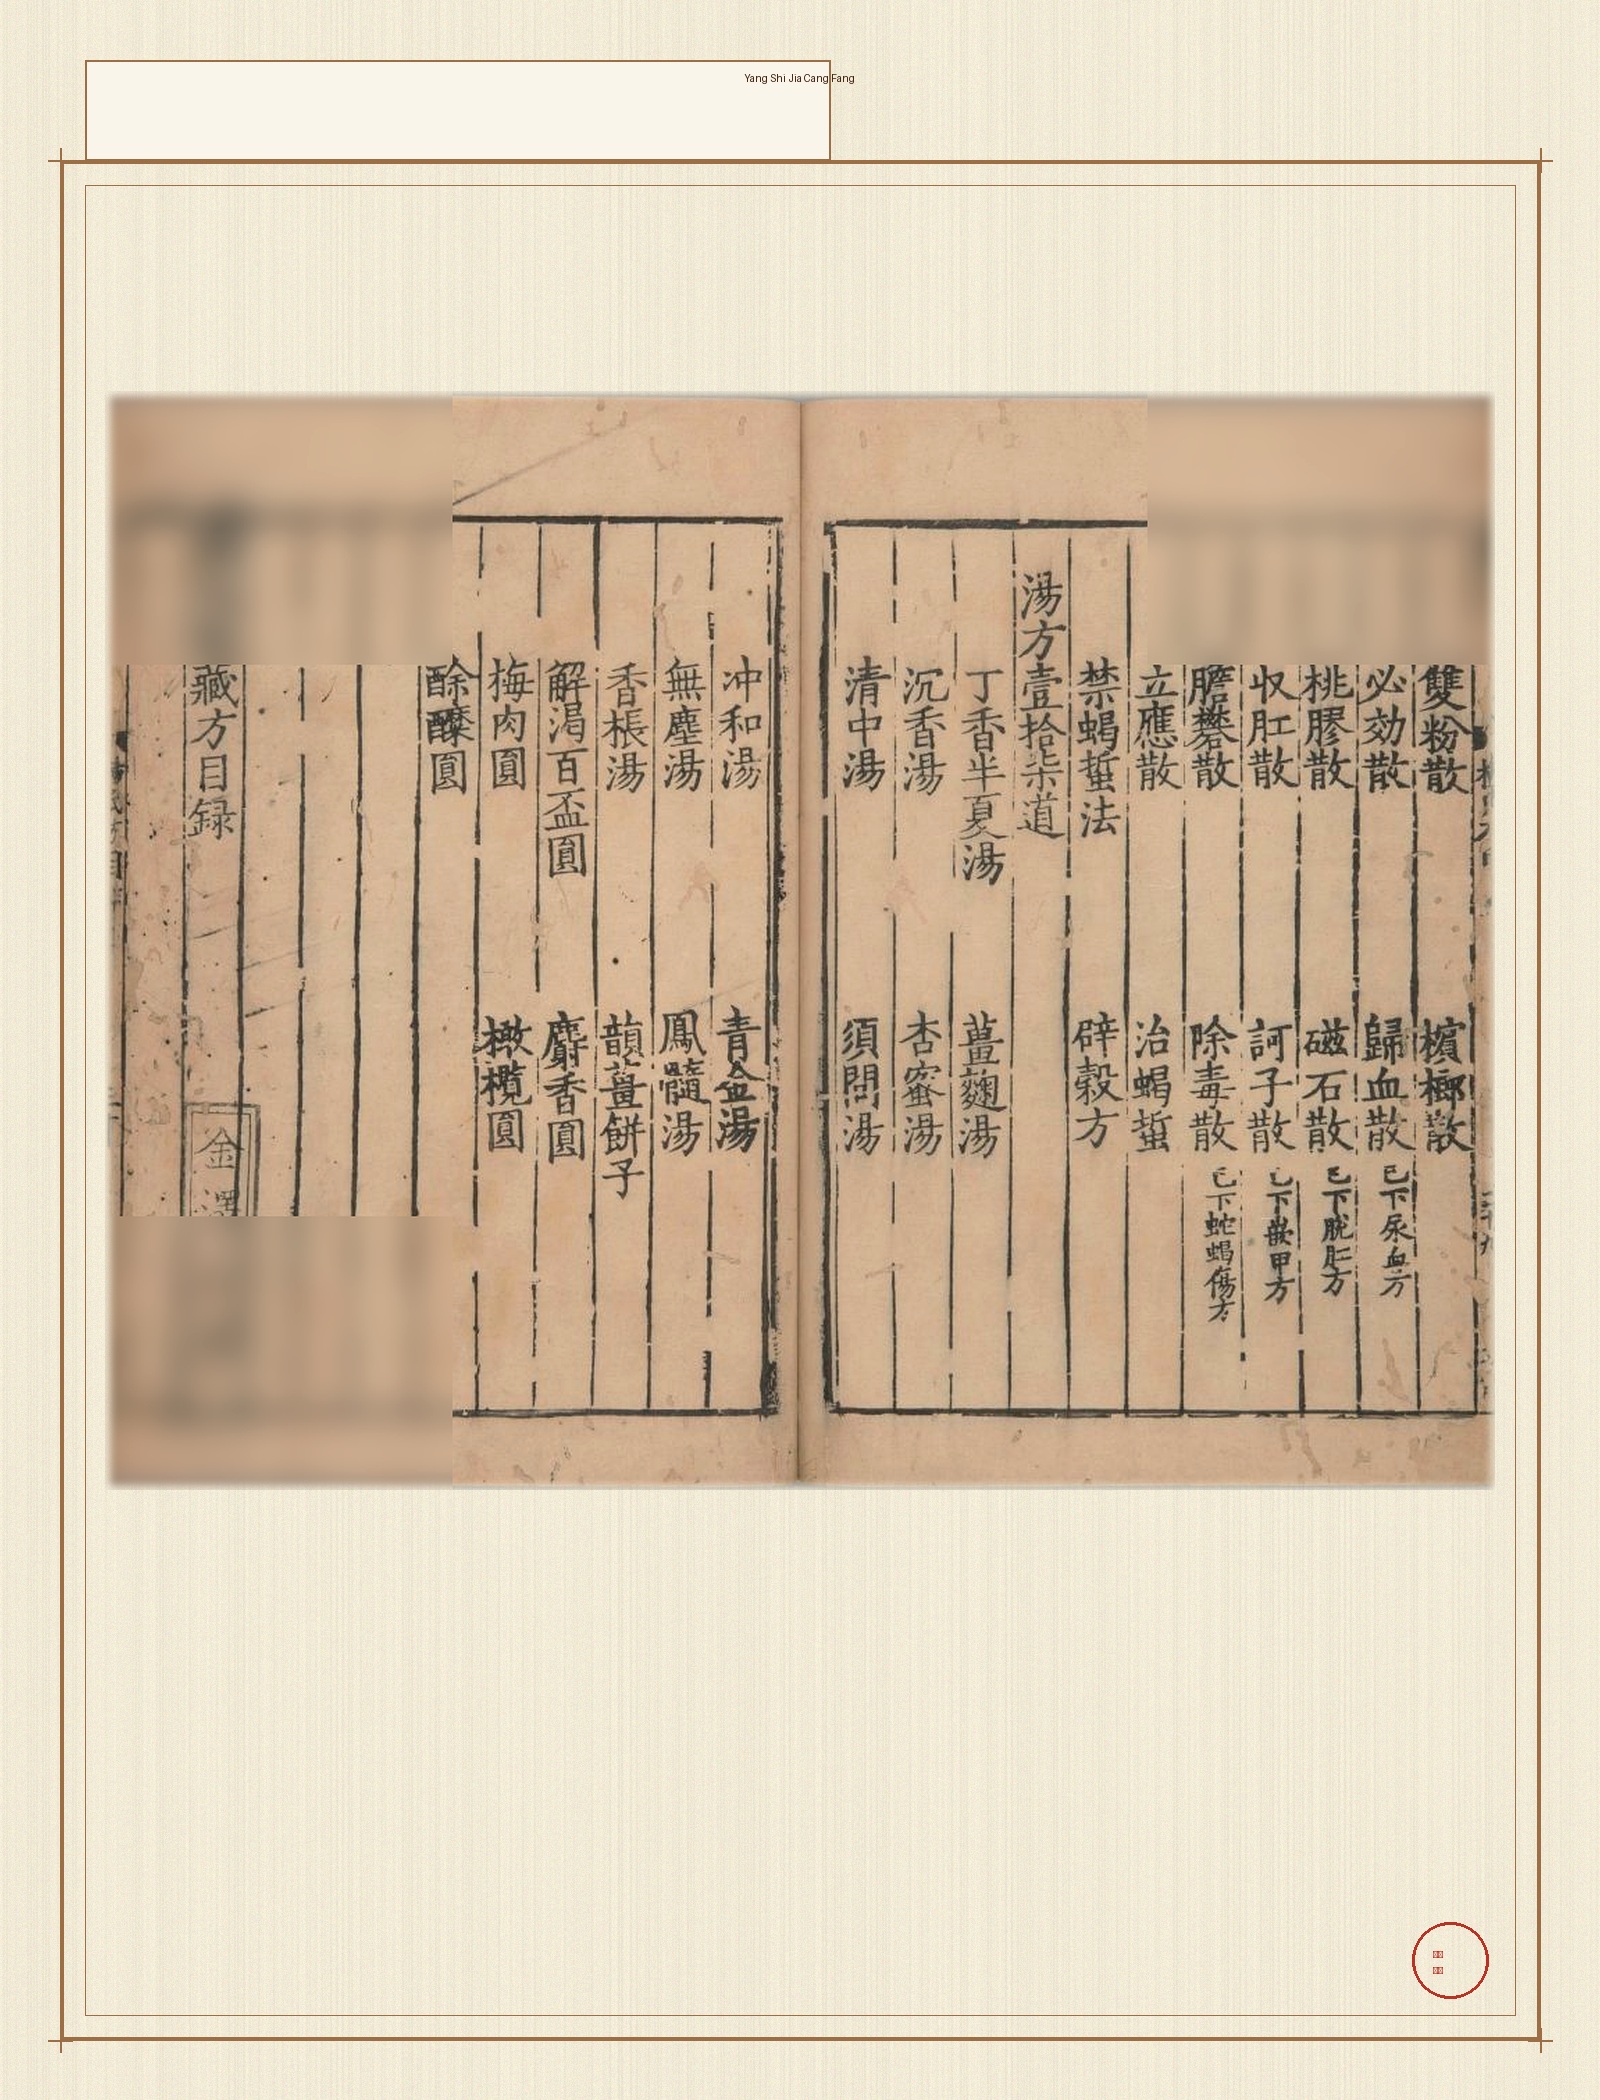 Yang Shi Jia Cang Fang
雙粉散 檳榔散
必効散 歸血散 已下尿血方
桃膠散 磁石散 已下脱肛方
収肛散 訶子散 已下嵌甲方
膽礬散 除毒散 已下蛇蝎傷方
立應散 治蝎蜇
禁蝎蜇法 辟穀方
湯方壹拾柒道
丁香半夏湯 薑麹湯
沉香湯 杏蜜湯
清中湯 須問湯
冲和湯 青金湯
無塵湯 鳳髓湯
香棖湯 韻薑餅子
解渴百盃圓 麝香圓
梅肉圓 橄欖圓
酴醾圓
藏方目録
金澤